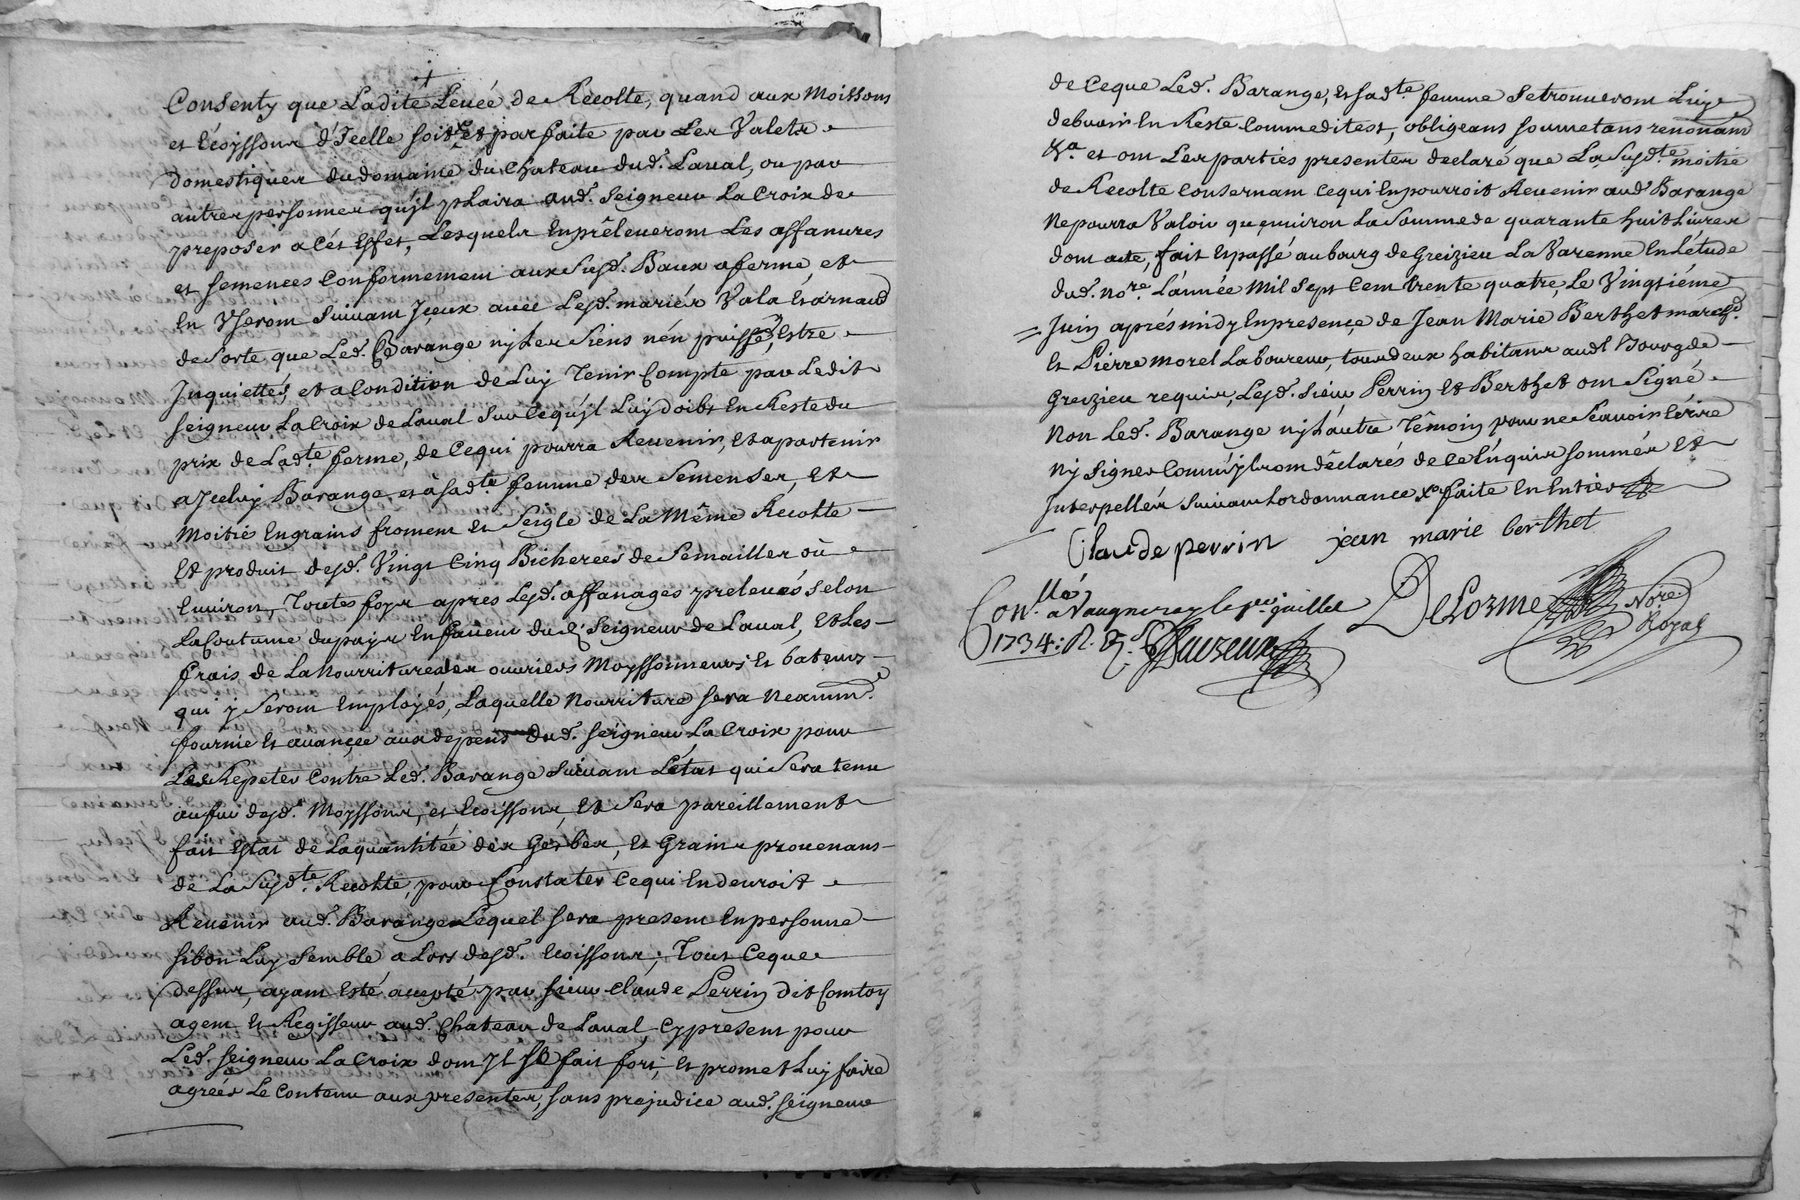 Consenty que Ladite Levée de Recolte, quand aux Moissons
et Ecoyssons d'Icelle soit et parfaite par Les Valets
domestiques du domaine du Chateau dud. Laual, ou par
autres personnes qu'jl plaira aud. Seigneur La Croix de
preposer a Cet Effet, Lesquels En prêleueront Les affanures
et semences Conformement aux Susd. Baux a ferme, et
En Vseront Suiuant Jceux auec Lesd. mariés Vala Et arnaud
de Sorte que Led. Barange nij les Siens n'en puisse, Estre
Jnquiettés et a Condition de Luy Tenir Compte par Ledit
Seigneur La Croix de Laual Sur Ce qu'jl Luy doibt En Reste du
prix de Ladte. ferme, de Ce qui pourra Reuenir, Et apartenir
a Jceluy Barange, et à Sadte. femme des Semenses, Et
Moitié En grains froment Et Seigle de La Même Recolte
Et produit desd. Vingt Cinq Bicherees de Semailles où
Enuiron, Toutes foys apres Lesd. affanages preleués Selon
La Coutume du pajs En faueur dud. Seigneur de Laual, Et Les
frais de La Nourriture des ouuriers Moyssonneurs Et bateurs
qui y Seront Employés, Laquelle Nourriture Sera Neanmd.
fournie Et auançée aux depens dud. Seigneur La Croix pour
Les Repeter Contre Led. Barange Suiuant L'état qui Sera tenu
au fur desd. Moyssons, et Ecoissons, Et Sera pareillement
fait Estat de La quantitée des Gerbes, Et Grains prouenans
de La Susdte. Recolte, pour Constater Ce qui En deuroit
Reuenir aud. Barange Lequel Sera present En personne
Si bon Luy Semble a Lors desd. Ecoissons; Tout Ce que
dessus, ayant Esté accepté par Sieur Claude Perrin dit Comtoy
agent Et Regisseur aud. Chateau de Laual Cy present pour
Led. Seigneur La Croix dont Jl Se fait fort, Et promet Luy faire
agreer Le Contenu aux presentes, Sans prejudice aud. Seigneur
de Ce que Led. Barange, Et Sadte. femme Se trouueront Luy
debuoir En Reste Comme dit est, obligeans Soumetans renonant
&a. et ont Les parties presentes declaré que La Susdte. moitié
de Recolte Consernant Ce qui En pourroit Reuenir aud. Barange
Ne pourra Valoir qu'enuiron La Somme de quarante huit Liures
dont acte, fait Et passé au bourg de Greizieu La Varenne En L'étude
dud. Nore. L'année Mil Sept Cent trente quatre, Le Vingtiéme
Juin aprés midy En presençe de Jean Marie Berthet marchd.
Et Pierre morel Laboureur, tous deux habitans audt Bourg de
Greizieu requis, Lesd. Sieur Perrin Et Berthet ont Signé
Non Led. Barange nij L'autre Têmoin pour ne Scauoir Ecrire
Nij Signer Comm'jls ont dêclarés de Ce Enquis Sommés Et
Interpellés Suiuant Lordonnance faite En Entier
Claude perrin jean marie berthet
Con.llé a Vaugneray le per juillet Delorme Nore
1734: R. Royal